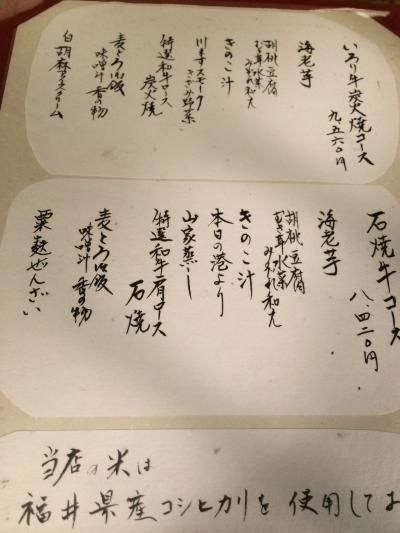 いろり牛炭火焼コース
九、五六〇円
海老芋
胡桃豆腐
むき茸水菜
みぞれ和え
きのこ汁
川ますスモーク
きざみ野菜
特選和牛ロース
炭火焼
麦とろ御飯
味噌汁 香の物
白胡麻アイスクリーム
石焼牛コース
八、四二〇円
海老芋
胡桃豆腐
むき茸水菜
みぞれ和え
きのこ汁
本日の港より
山家蒸し
特選和牛肩ロース
石焼
麦とろ御飯
味噌汁 香の物
粟麩ぜんざい
当店の米は
福井県産コシヒカリを使用してお